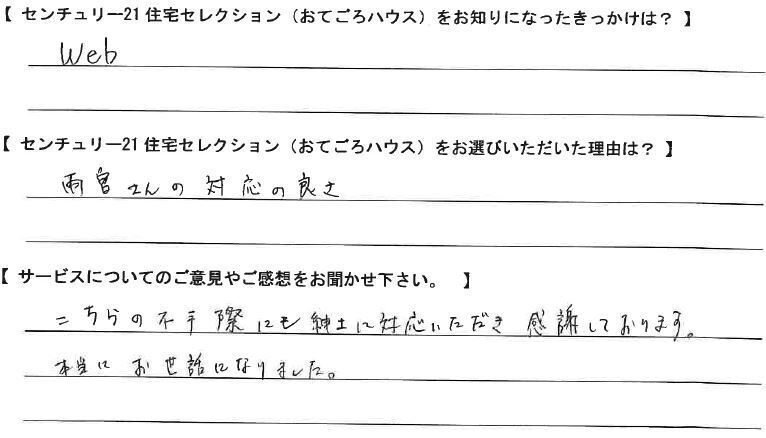 【 センチュリー21 住宅セレクション（おてごろハウス）をお知りになったきっかけは？ 】
Web
【 センチュリー21 住宅セレクション（おてごろハウス）をお選びいただいた理由は？ 】
雨宮さんの対応の良さ
【 サービスについてのご意見やご感想をお聞かせ下さい。 】
こちらの不手際にも紳士に対応いただき感謝しております。
本当にお世話になりました。